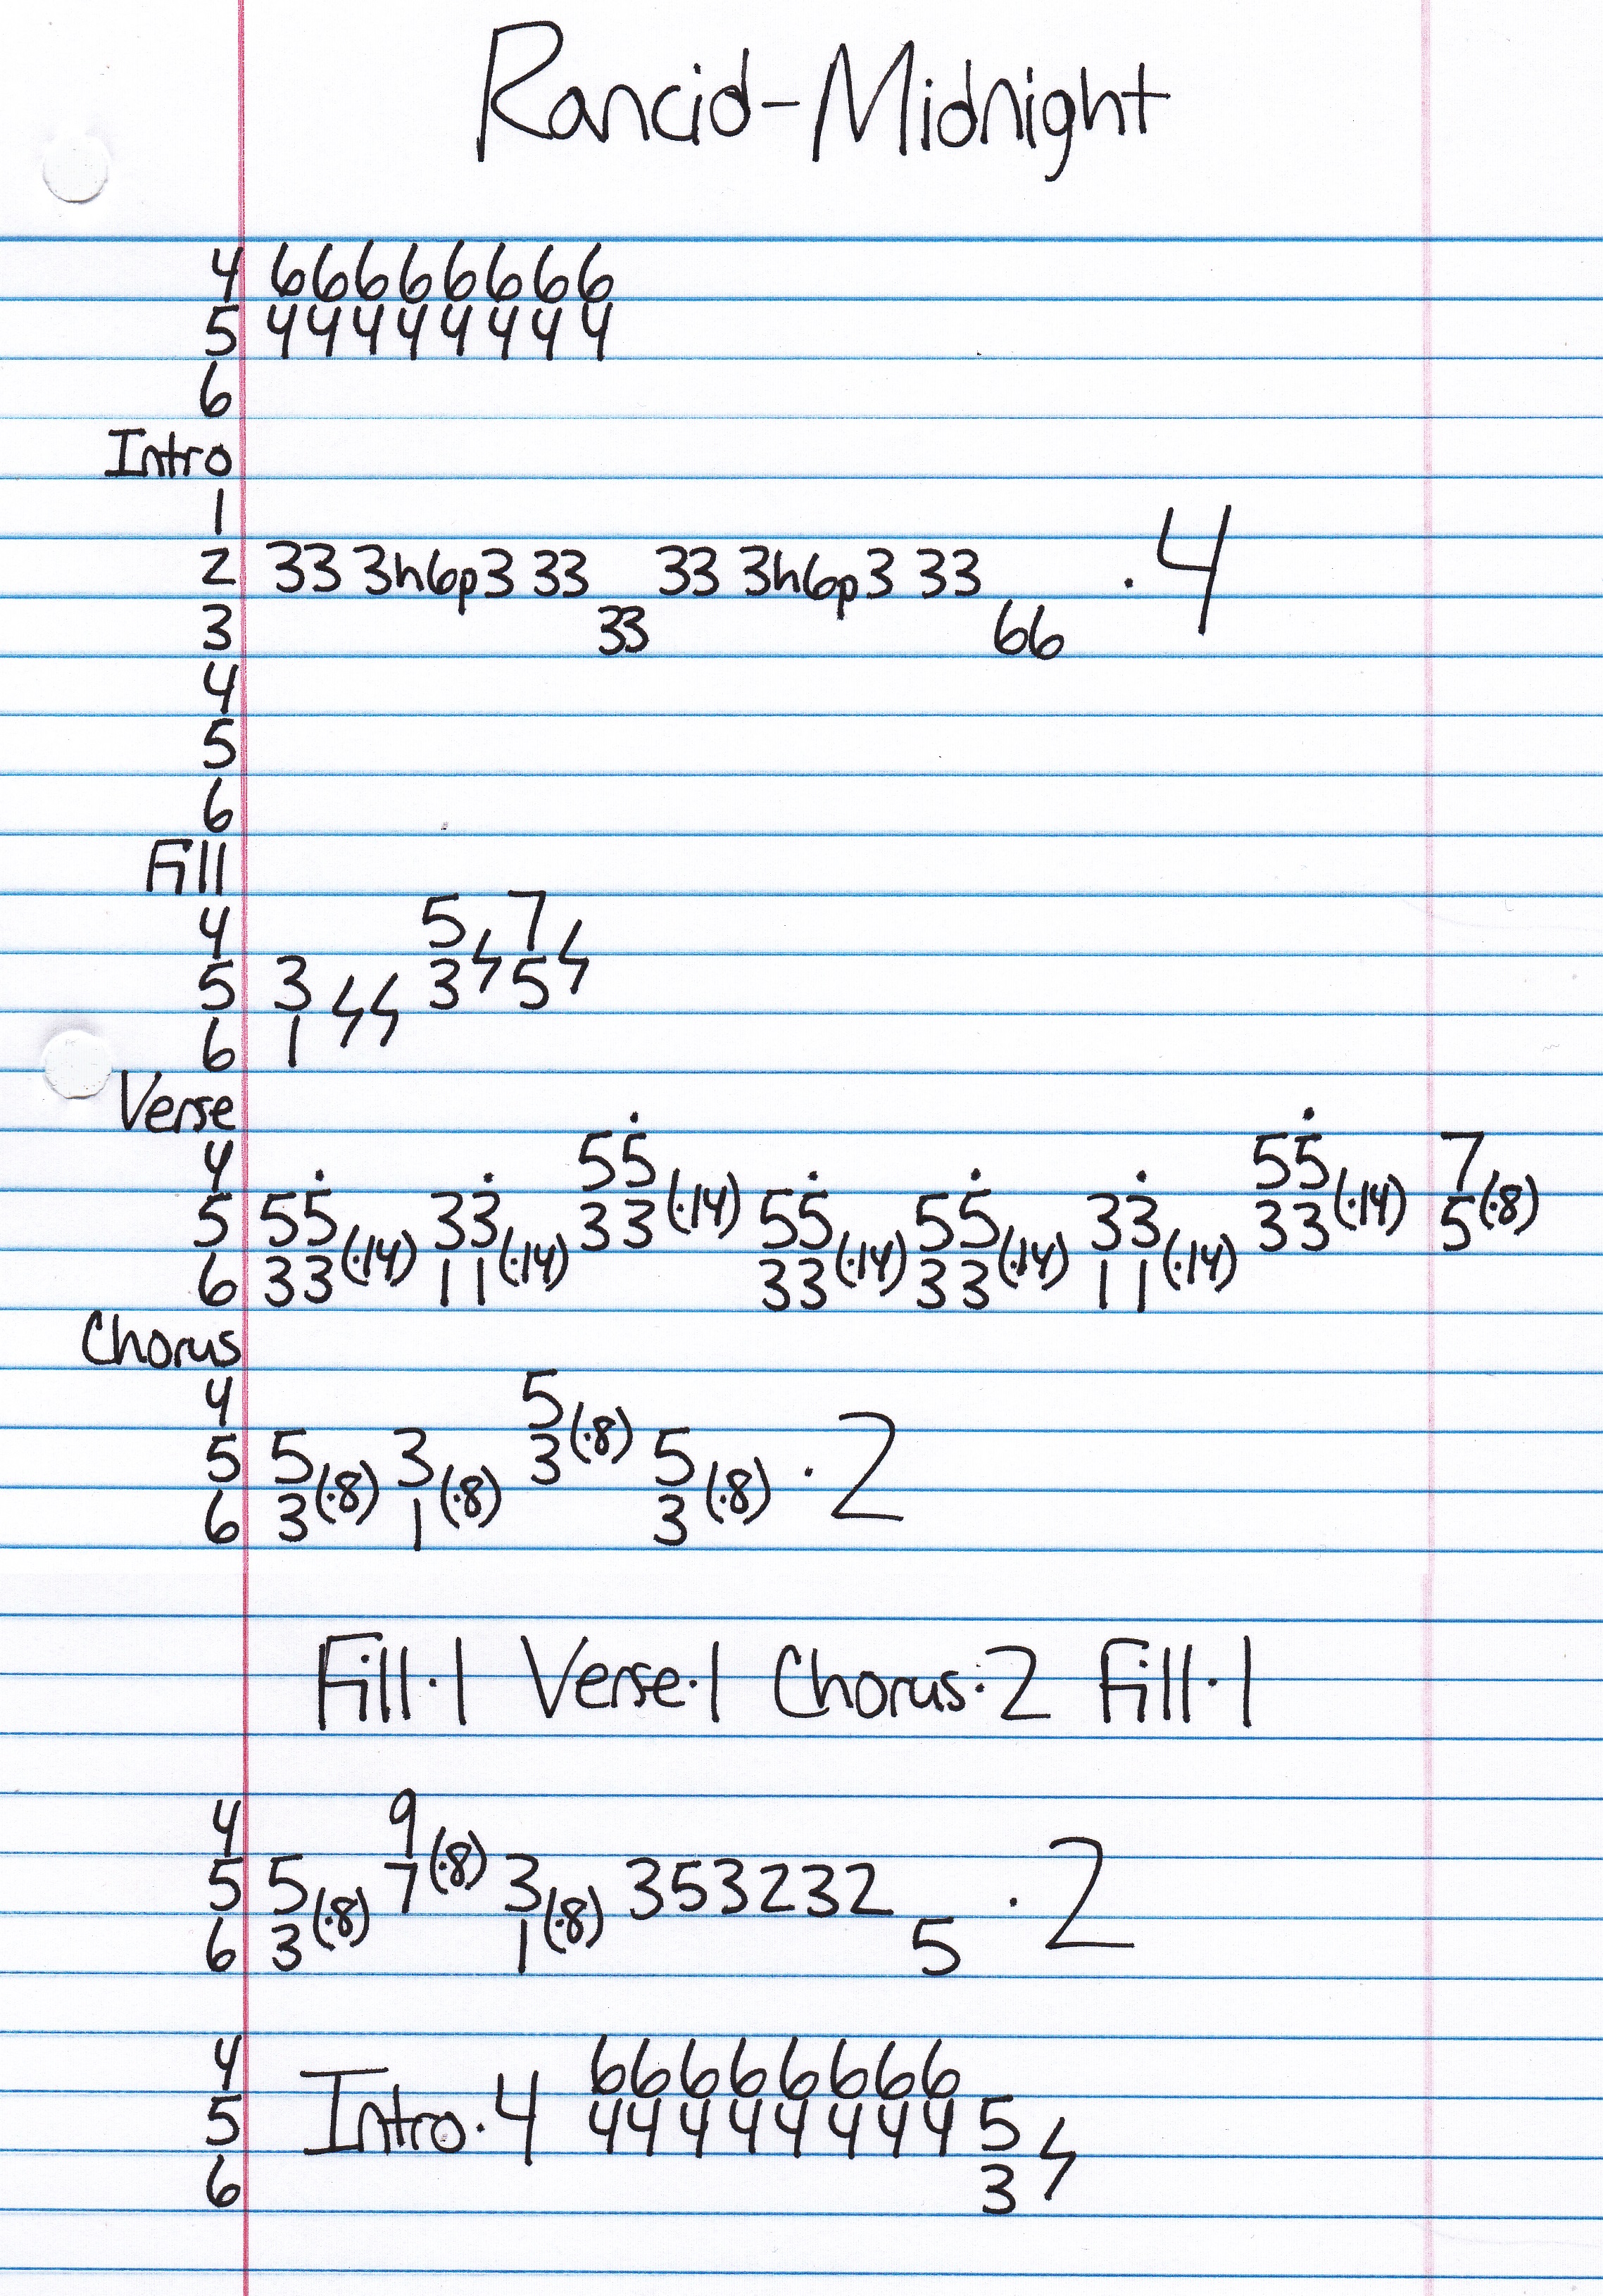 Rancid-Midnight
4 66666666
5 44444444
6
Intro
1
2 33 3h6p3 33 33 3h6p3 33 ·4
3 33 66
4
5
6
Fill
4 5 7
5 3 ϟϟ 3 ϟ 5 ϟ
6 1
Verse
4 55 55 7
5 55 33 33(·14) 55 55 33 33(·14) 5(·8)
6 33(·14) 11(·14) 33(·14) 33(·14) 11(·14)
Chorus
4 5
5 5 3 3(·8) 5 ·2
6 3(·8) 1(·8) 3(·8)
Fill·1 Verse·1 Chorus·2 Fill·1
4 9
5 5 7(·8) 3 353232 ·2
6 3(·8) 1(·8) 5
4 66666666
5 Intro·4 44444444 5
6 3 ϟ